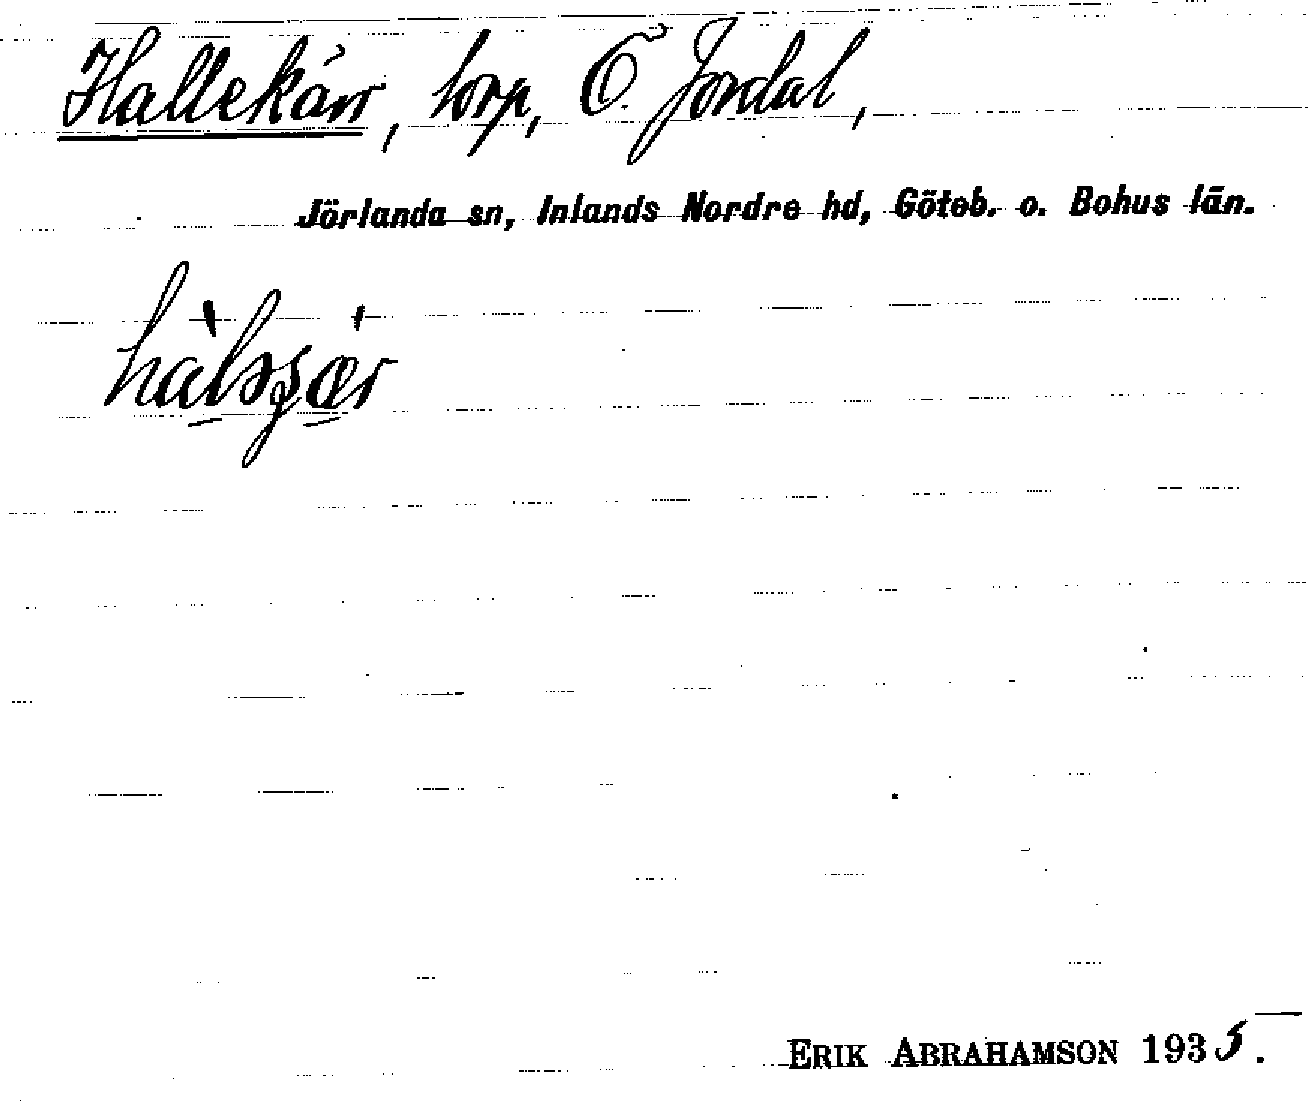 Hallekärr, torp, Ö. Jordal,
Jörlanda sn, Inlands Nordre hd, Göteb. o. Bohus län.
ERIK ABRAHAMSON 1935.